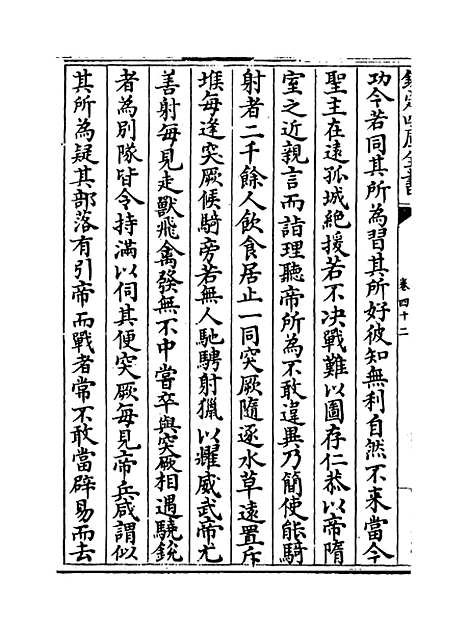 欽定四庫全書
卷四十二
功今若同其所為習其所好彼知無利自然不來當今
聖主在遠孤城絶援若不決戰難以圖存仁恭以帝隋
室之近親言而詣理聽帝所為不敢違異乃簡使能騎
射者二千餘人飲食居止一同突厥隨逐水草遠置斥
堠每逢突厥候騎旁若無人馳騁射獵以耀威武帝尤
善射每見走獸飛禽發無不中嘗卒與突厥相遇驍銳
者為別隊皆令持滿以伺其便突厥每見帝兵咸謂似
其所為疑其部落有引帝而戰者常不敢當辟易而去